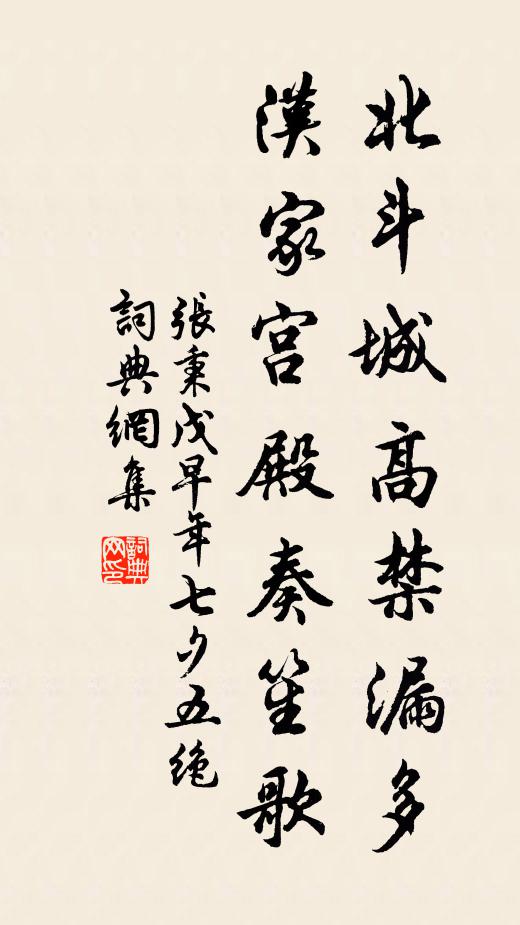 北斗城高禁漏多
漢家宫殿奏笙歌
張秉戊早年七夕五绝
詞典網集
詞典网印